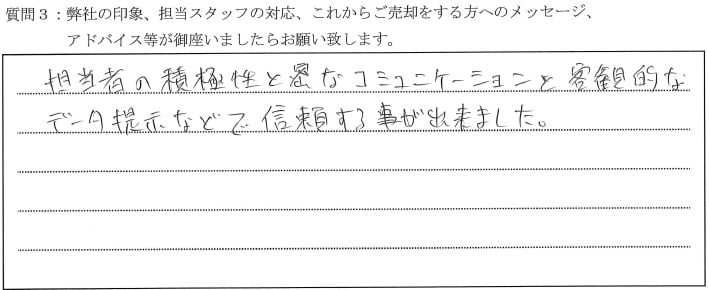 質問３：弊社の印象、担当スタッフの対応、これからご売却をする方へのメッセージ、
アドバイス等が御座いましたらお願い致します。
担当者の積極性と密なコミュニケーションと客観的な
データ提示などで信頼する事が出来ました。